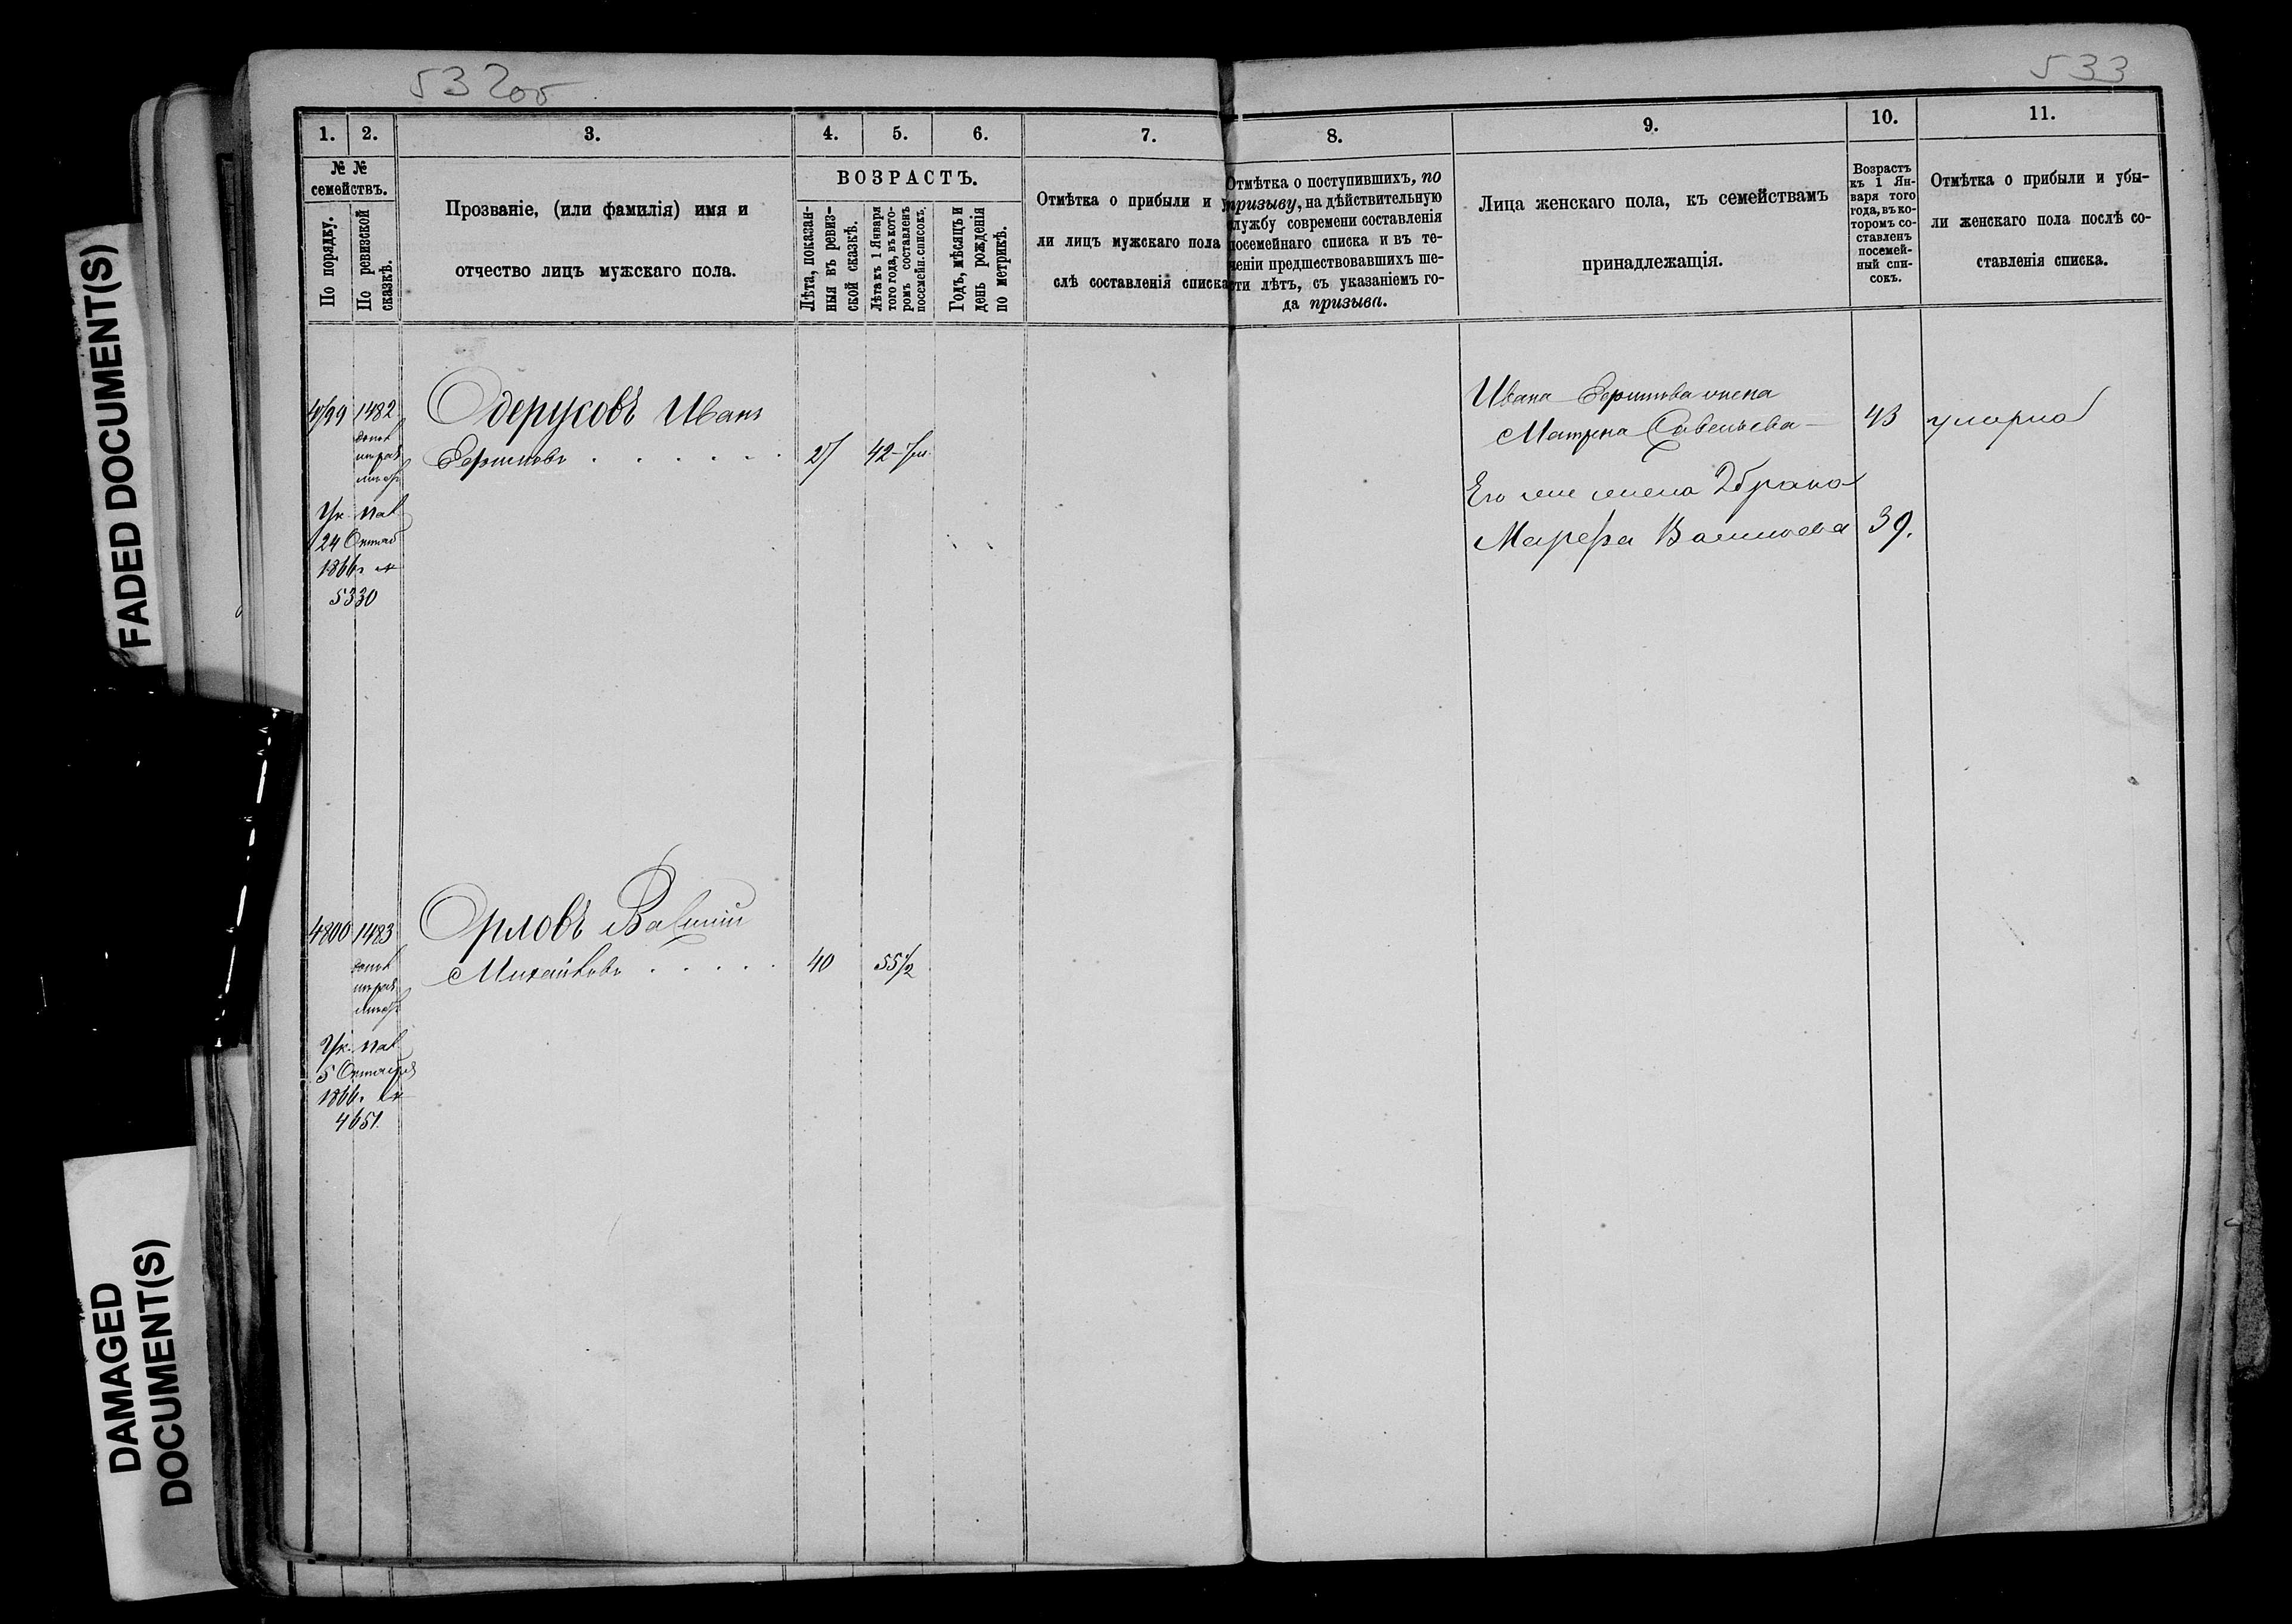 532об
533
FADED DOCUMENT(S)
DAMAGED
DOCUMENT(S)
1.
2.
3.
4.
5.
6.
7.
8.
9.
10.
11.
№ №
семействъ.
По порядку.
По ревизской
сказкѣ.
Прозваніе, (или фамилія) имя и
отчество лицъ мужскаго пола.
ВОЗРАСТЪ.
Лѣта, показан-
ныя въ ревиз-
ской сказкѣ.
Лѣта къ 1 Января
того года, въ кото-
ромъ составленъ
посемейн. списокъ.
Годъ, мѣсяцъ и
день рожденія
по метрикѣ.
Отмѣтка о прибыли и у
ли лицъ мужскаго пола
слѣ составленія списка
Отмѣтка о поступившихъ, по
призыву, на дѣйствительную
службу современи составленія
посемейнаго списка и въ те-
ченіи предшествовавшихъ ше-
сти лѣтъ, съ указаніемъ го-
да призыва.
Лица женскаго пола, къ семействамъ
принадлежащія.
Возрастъ
къ 1 Ян-
варя того
года, въ ко-
торомъ со-
ставленъ
посемей-
ный спи-
сокъ.
Отмѣтка о прибыли и убы-
ли женскаго пола послѣ со-
ставленія списка.
4799 1482
Одерусовъ Иванъ
27 42
Ук. пал.
24 Октяб
1866г №
5330
Ивана жена
Матрена Савельева 43 умерла
Его же жена 2 брака
Марефа Васильева 39.
4800 1483
Орловъ Василий
Михайловъ 40 55 1/2
Ук. пал.
5 Октября
1866г №
4651.